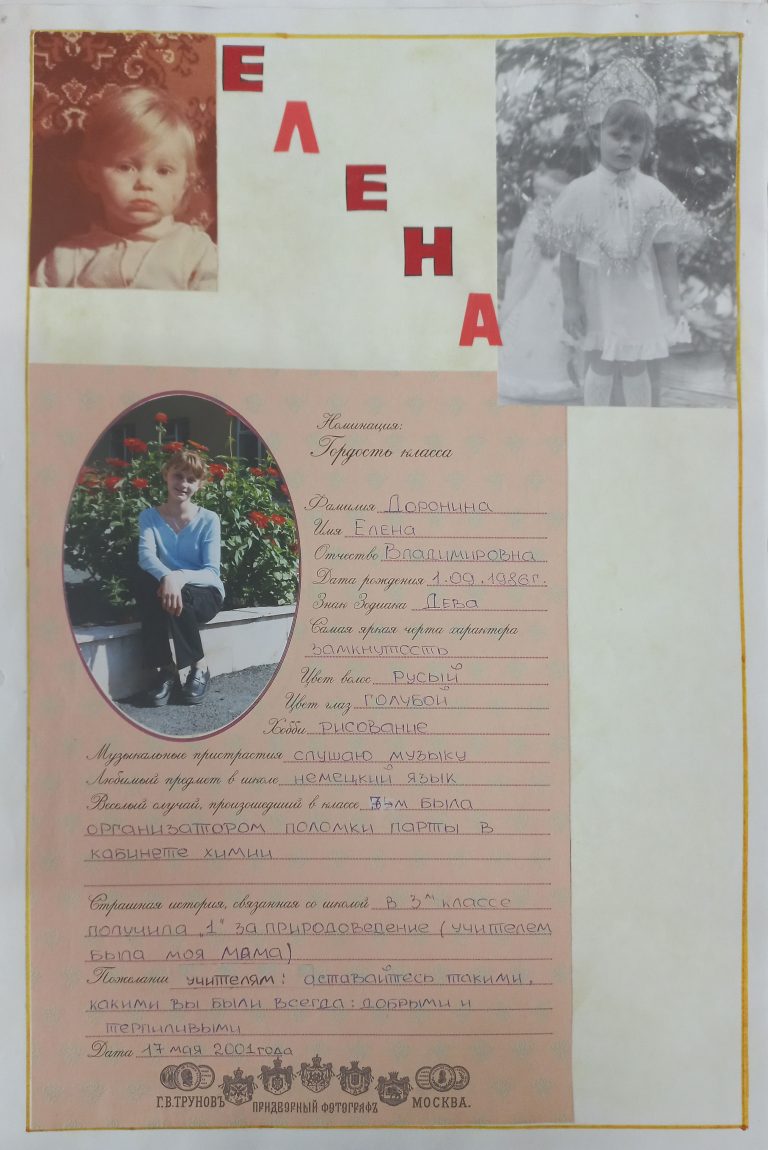 ЕЛЕНА
Номинация:
Гордость класса
Фамилия Доронина
Имя Елена
Отчество Владимировна
Дата рождения 1.09.1986г.
Знак Зодиака Дева
Самая яркая черта характера
замкнутость
Цвет волос русый
Цвет глаз голубой
Хобби рисование
Музыкальные пристрастия слушаю музыку
Любимый предмет в школе немецкий язык
Веселый случай, произошедший в классе 7м была
организатором поломки парты в
кабинете химии
Страшная история, связанная со школой в 3м классе
получила „1" за природоведение (учителем
была моя мама)
Пожелании учителям: оставайтесь такими,
какими вы были всегда: добрыми и
терпиливыми
Дата 17 мая 2001года
Г.В.ТРУНОВЪ ПРИДВОРНЫЙ ФОТОГРАФЪ МОСКВА.